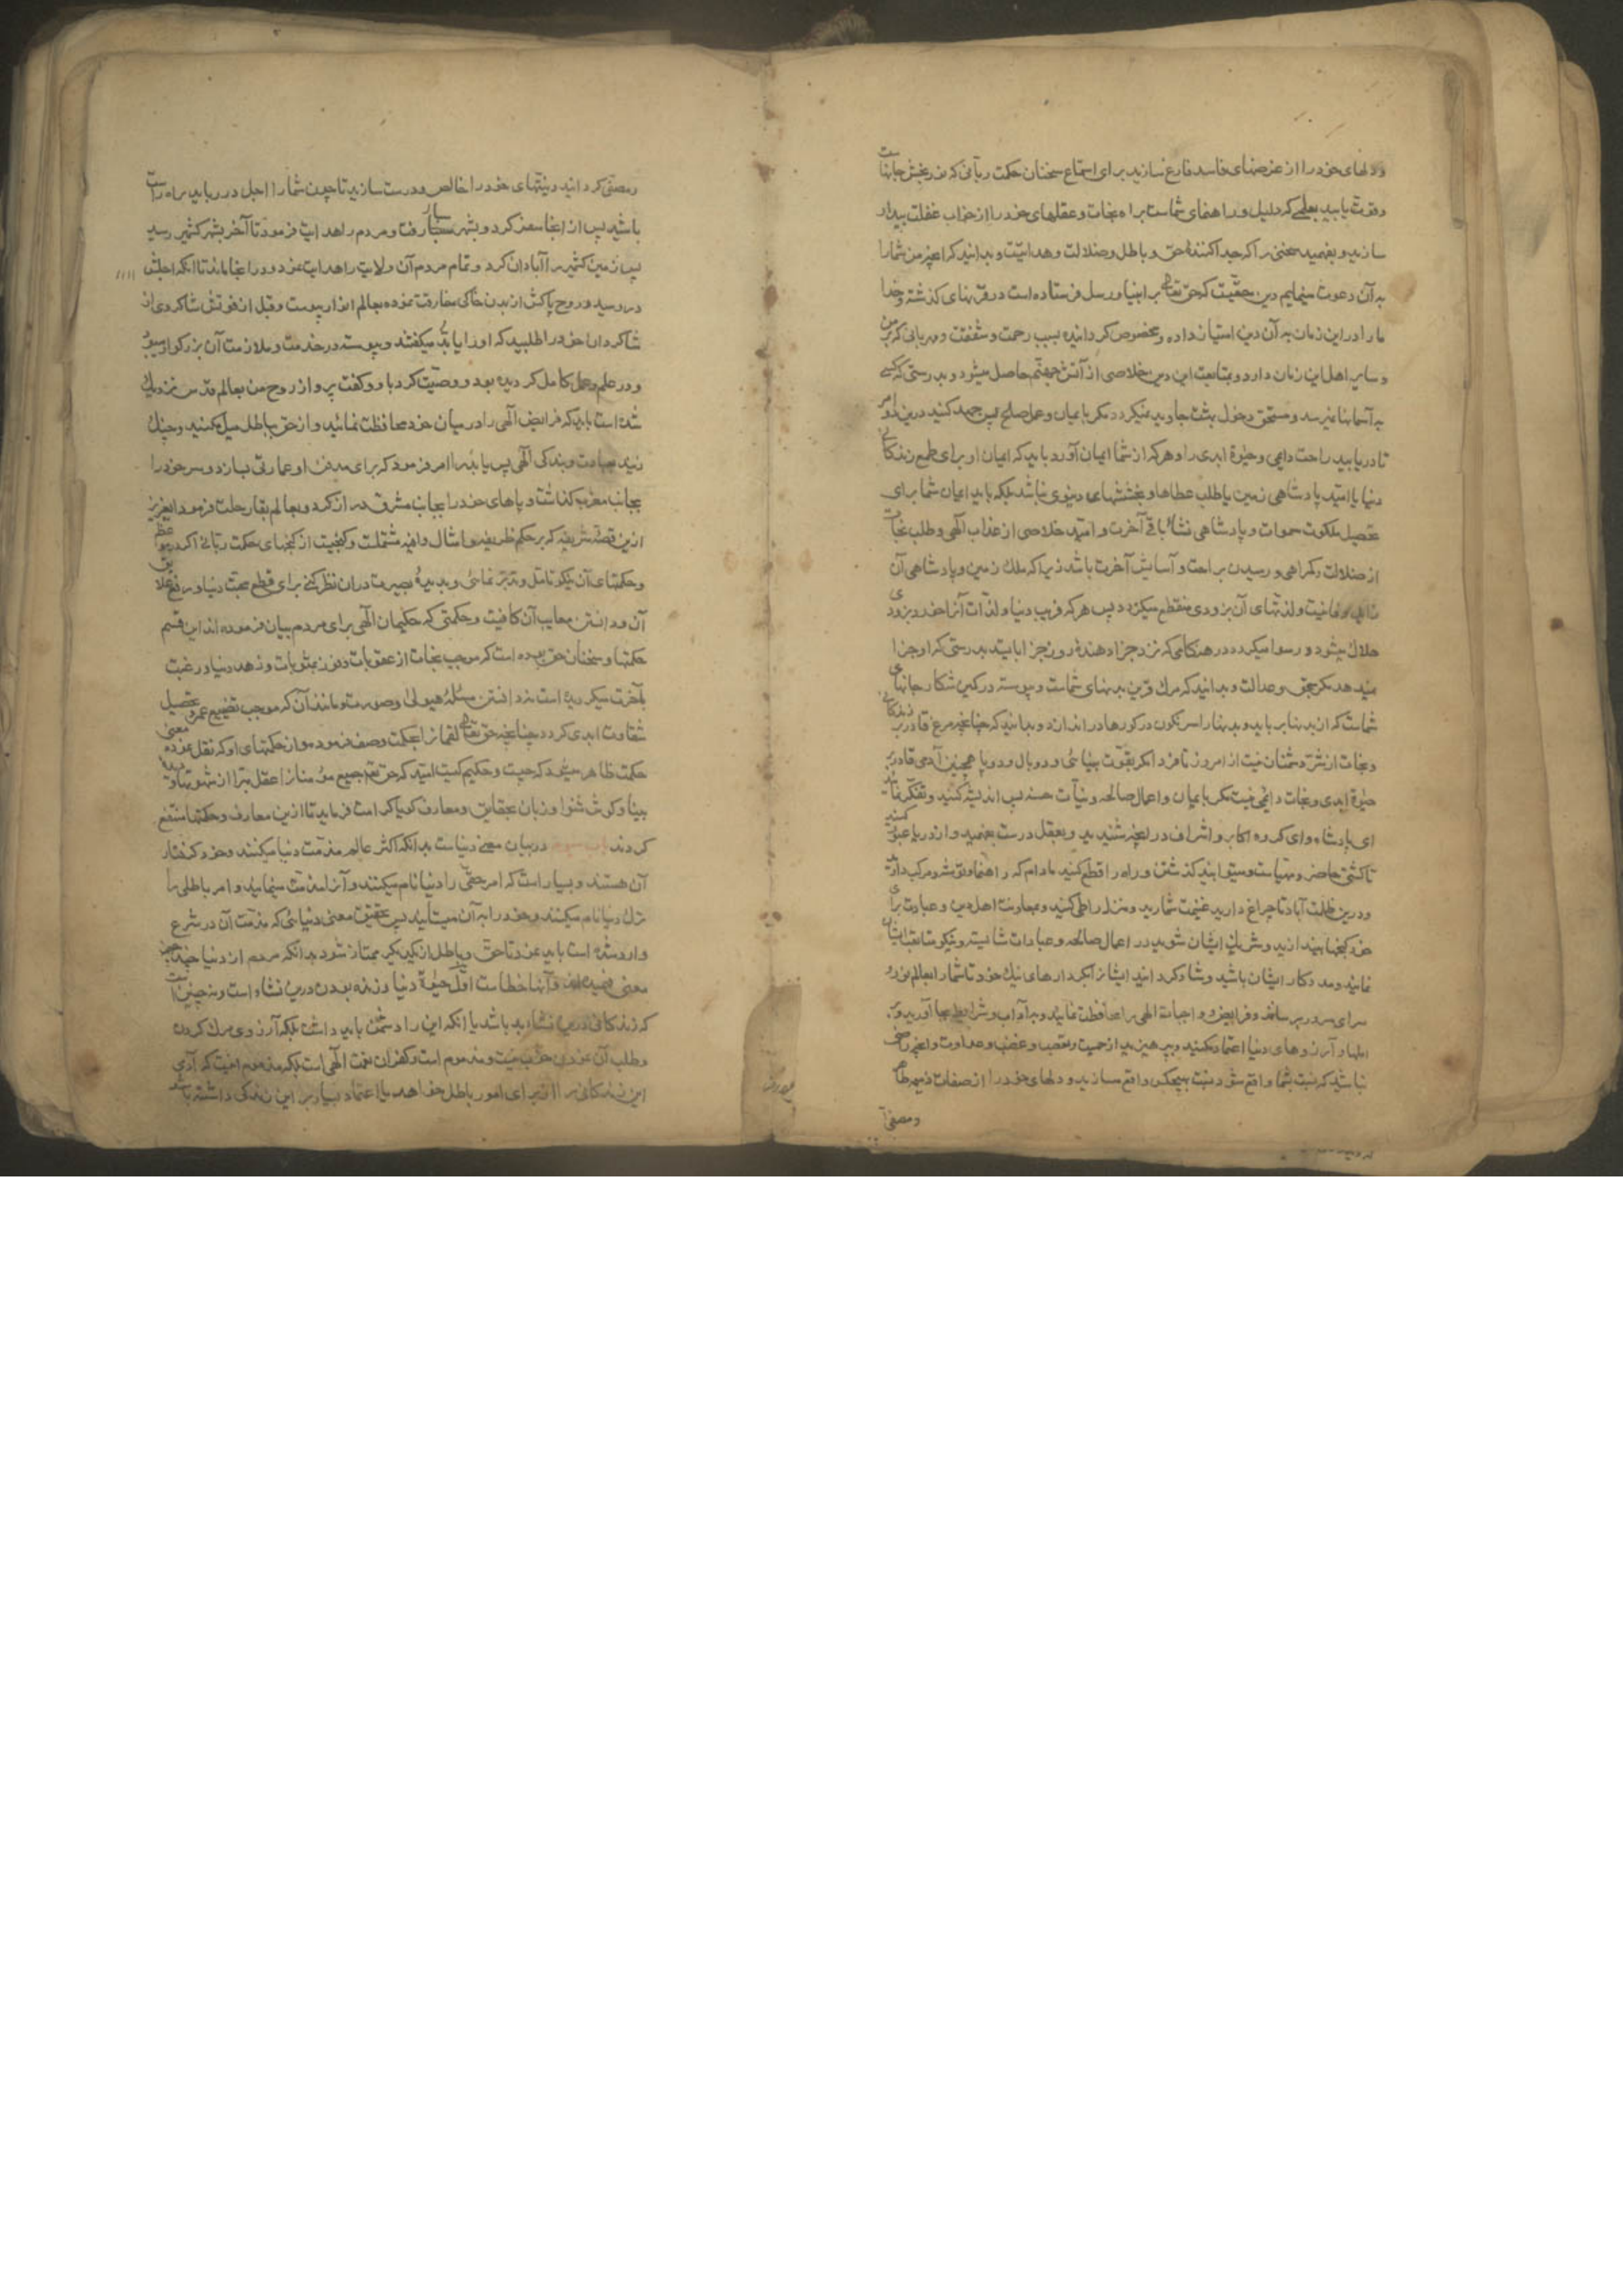 و دلهای خود را از غرضهای فاسد فارغ سازید برای استماع سخنان حکمت ربانی که نوربخش جانهاست
و قوت یابید بعلمی که دلیل و راهنمای شماست براه نجات و عقلهای خود را از خواب غفلت بیدار
سازید و بفهمید سخنی را که جدا کنندهٔ حق و باطل و ضلالت و هدایتست و بدانید که آنچه من شما را
به آن دعوت مینمایم دین حقیست که حق تعالی بر انبیا و رسل فرستاده است در قرنهای گذشته و خدا
ما را در این زمان به آن دین امتیاز داده و مخصوص گردانیده بسبب رحمت و شفقت و مهربانی که بر من
و سایر اهل این زمان دارد و بمتابعت این دین خلاصی از آتش جهنم حاصل میشود و بدرستی که کسی
به آسمانها نمیرسد و مستحق دخول بهشت جاوید نمیگردد مگر بایمان و عمل صالح پس جهد کنید درین دو امر
تا دریابید راحت دایمی و حیوة ابدی را و هر که از شما ایمان آورد باید که ایمان او برای طمع زندگانی
دنیا یا امید پادشاهی زمین یا طلب عطاها و بخششهای دنیوی نباشد بلکه باید ایمان شما برای
تحصیل ملکوت سموات و پادشاهی نشاٴ باقی آخرت و امید خلاصی از عذاب الهی و طلب نجات
از ضلالت و گمراهی و رسیدن براحت و آسایش آخرت باشد زیرا که ملک زمین و پادشاهی آن
زایل و فانیست و لذتهای آن بزودی منقطع میگردد پس هر که فریب دنیا و لذات آنرا خورد بزودی
هلاک میشود و رسوا میگردد در هنگامی که نزد جزا دهندهٔ روز جزا بایستد بدرستی که او جزا
نمیدهد مگر بحق و عدالت و بدانید که مرگ قرین بدنهای شماست و پیوسته در کمین شکار جانهای
شماست که از بدنها برباید و بدنها را سرنگون در گورها در اندازد و بدانید که چنانچه مرغ قادر بر زندگانی
و نجات از شر دشمنان نیست از امروز تا فردا مگر بقوت بینائی و دو بال و دو پا همچنین آدمی قادر بر
حیوة ابدی و نجات دایمی نیست مگر بایمان و اعمال صالحه و نیّات حسنه پس اندیشه کنید و تفکر نمائید
ای پادشاه و ای گروه اکابر و اشراف در آنچه شنیدید و بعقل درست بفهمید و از دریا عبور کنید
تا کشتی حاضر و مهیاست و میتوانید گذشتن و راه را قطع کنید مادام که راهنما و توشه و مرکب دارید
و درین ظلمت آباد تا چراغ دارید غنیمت شمارید و منزل را طی کنید و بمعاونت اهل دین و عبادت برای
خود گنجها بیندازید و شریک ایشان شوید در اعمال صالحه و عبادات شایسته و نیکو متابعت ایشان
نمائید و مددکار ایشان باشید و شاد گردانید ایشانرا بکردارهای نیک خود تا شما را بعالم نور و
سرای سرور برسانند و فرایض و واجبات الهی را محافظت نمائید و به آداب و شرایط بجا آورید و بر
املها و آرزوهای دنیا اعتماد مکنید و بپرهیزید از حمیت و تعصب و غضب و عداوت و آنچه راضی
نباشید که نسبت بشما واقع شود نسبت بهیچکس واقع مسازید و دلهای خود را از صفات ذمیمه طاهر
و مصفی
و مصفی گردانید و نیتهای خود را خالص و درست سازید تا چون شما را اجل دریابد براه راست
باشید پس از آنجا سفر کرد و بشهر بسیار رفت و مردم را هدایت فرمود تا آخر بشهر کشمیر رسید
پس زمین کشمیر را آبادان کرد و تمام مردم آن ولایت را هدایت نمود و در آنجا ماند تا آنکه اجلش
در رسید و روح پاکش از بدن خاکی مفارقت نموده بعالم انوار پیوست و قبل از فوتش شاگردی از
شاگردان خود را طلبید که او را یابد میگفتند و پیوسته در خدمت و ملازمت آن بزرگوار میبود
و در علم و عمل کامل گردیده بود و وصیت کرد با او و گفت پرواز روح من بعالم قدس نزدیک
شده است باید که فرایض الهی را در میان خود محافظت نمائید و از حق بباطل میل مکنید و چنگ
زنید بعبادت و بندگی الهی پس یابد را امر فرمود که برای مدفن او عمارتی بسازد و سر خود را
بجانب مغرب گذاشت و پاهای خود را بجانب مشرق دراز کرد و بعالم بقا رحلت فرمود ای عزیز
ازین قصهٔ شریفه که بر حکم ظریفه و امثال وافیه مشتملست و گنجیست از گنجهای حکمت ربانی اگر در مواعظ
و حکمتهای آن نیکو تامل و تدبر نمائی و بدیدهٔ بصیرت در آن نظر کنی برای قطع محبت دنیا و رفع علایق
آن و دانستن معایب آن کافیست و حکمتی که حکیمان الهی برای مردم بیان فرموده اند این قسم
حکمتها و سخنان حق بوده است که موجب نجات از عقوبات و فوز بمثوبات و زهد دنیا و رغبت
بآخرت میگردیده است نه دانستن مسئلهٔ هیولی و صورت و مانند آن که موجب تضییع عمر و تحصیل
شقاوت ابدی گردد چنانچه حق تعالی لقمان را بحکمت وصف فرموده و از حکمتهای او که نقل نموده معنی
حکمت ظاهر میشود که چیست و حکیم کیست امید که حق تعم جمیع مؤمنانرا عقل مبرا از شهوتها و دیده
بینا و گوش شنوا و زبان بحقایق و معارف گویا کرامت فرماید تا ازین معارف و حکمتها منتفع
گردند باب سیوم در بیان معنی دنیاست بدانکه اکثر عالم مذمت دنیا میکنند و خود گرفتار
آن هستند و بسیار است که امر حقی را دنیا نام میکنند و آنرا مذمت مینمایند و امر باطلی را
ترک دنیا نام میکنند و خود را به آن میستایند پس تحقیق معنی دنیائی که مذمت آن در شرع
وارد شده است باید نمود تا حق و باطل از یکدیگر ممتاز شود بدانکه مردم از دنیا چند چیز
معنی فهمیده اند و آنها خطاست اول حیوة دنیا و زنده بودن درین نشاء است و نه چنین است
که زندگانی درین نشاء بد باشد یا آنکه این را دشمن باید داشت بلکه آرزوی مرگ کردن
و طلب آن نمودن خوب نیست و مذموم است و کفران نعمت الهی است بلکه مذموم اینست که آدمی
این زندگانی را از برای امور باطل خواهد یا اعتماد بسیار بر این زندگی داشته باشد